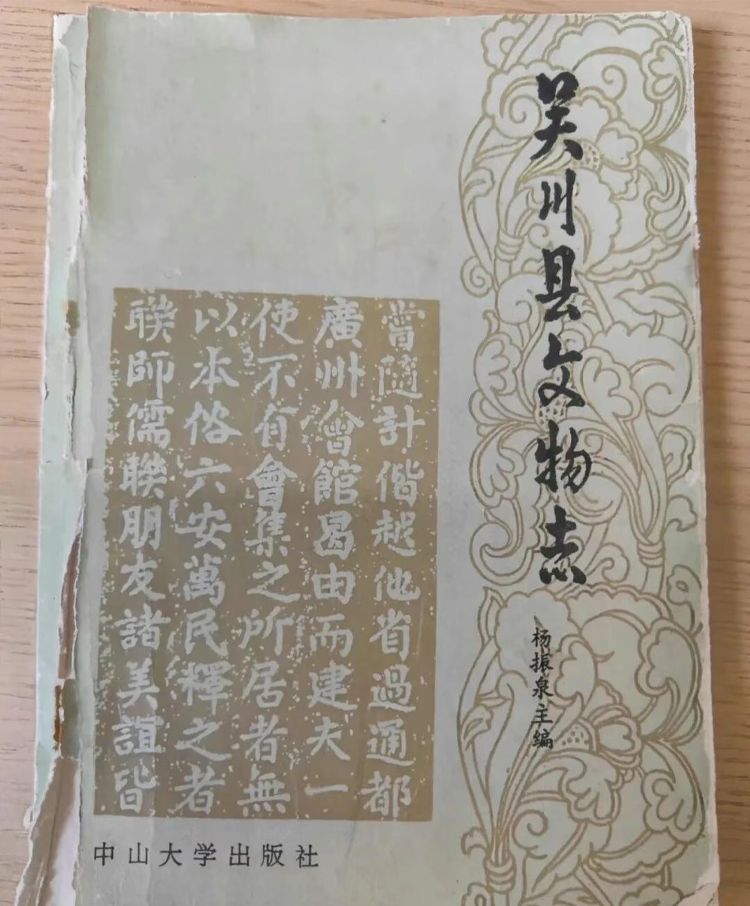 吴川县文物志
杨振泉主编
嘗隨計偕越他省過通都
廣州會館曷由而建夫一
使不有會集之所居者無
以本俗六安萬民釋之者
聮師儒聮朋友諸美誼皆
中山大学出版社